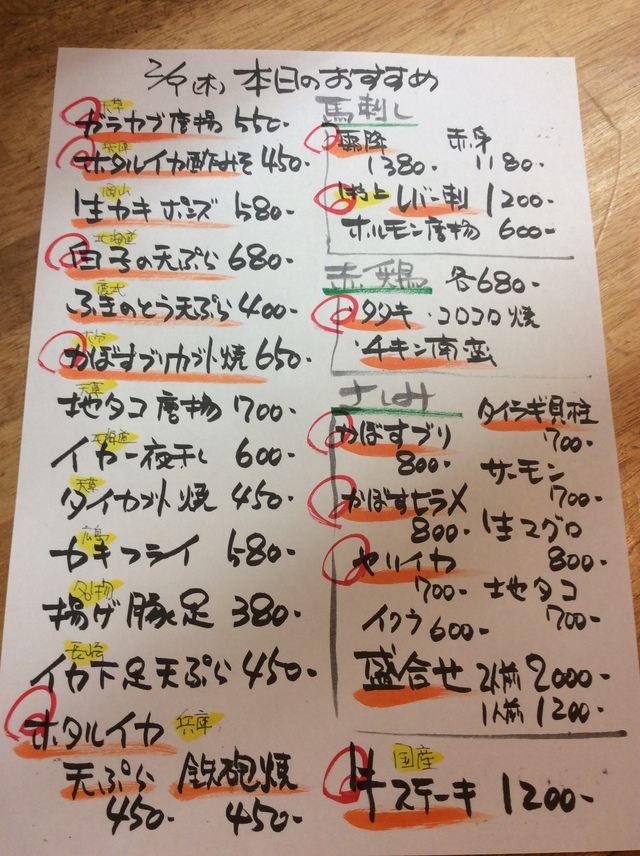 2/9(木)本日のおすすめ
天草
ガラカブ唐揚 550-
兵庫
ホタルイカ酢みそ 450-
岡山
生カキポン酢 580-
北海道
白子の天ぷら 680-
ふきのとう天ぷら 400-
大分
かぼすブリカブト焼 650-
天草
地タコ唐揚 700-
北海道
イカ一夜干し 600-
天草
タイカブト焼 450-
広島
カキフライ 580-
名物
揚げ豚足 380-
長崎
イカ下足天ぷら 450-
ホタルイカ 兵庫
天ぷら 鉄砲焼
450- 450-
馬刺し
霜降 赤身
1380- 1180-
特上レバー刺 1200-
ホルモン唐揚 600-
赤鶏 各680-
・タタキ ・コロコロ焼
・チキン南蛮
さしみ
かぼすブリ
800-
タイラギ貝柱
700-
かぼすヒラメ
800-
サーモン
700-
ヤリイカ
700-
生マグロ
800-
イクラ 600-
地タコ
700-
盛合せ 2人前 2000-
1人前 1200-
国産
牛ステーキ 1200-